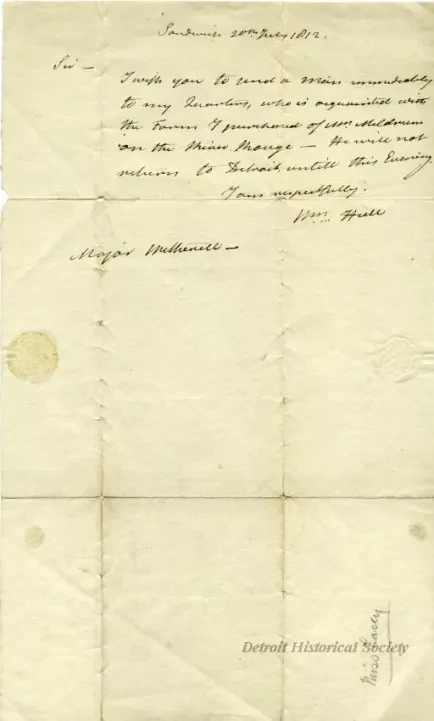 Sandwich 20th July 1812.
Sir —
I wish you to send a man immediately
to my Quarters, who is acquainted with
the Farm I purchased of Mr. Meldrum
on the River Rouge — He will not
return to Detroit untill this Evening.
I am respectfully.
Wm. Hull
Major Witherell —
Detroit Historical Society
Miss Lacey